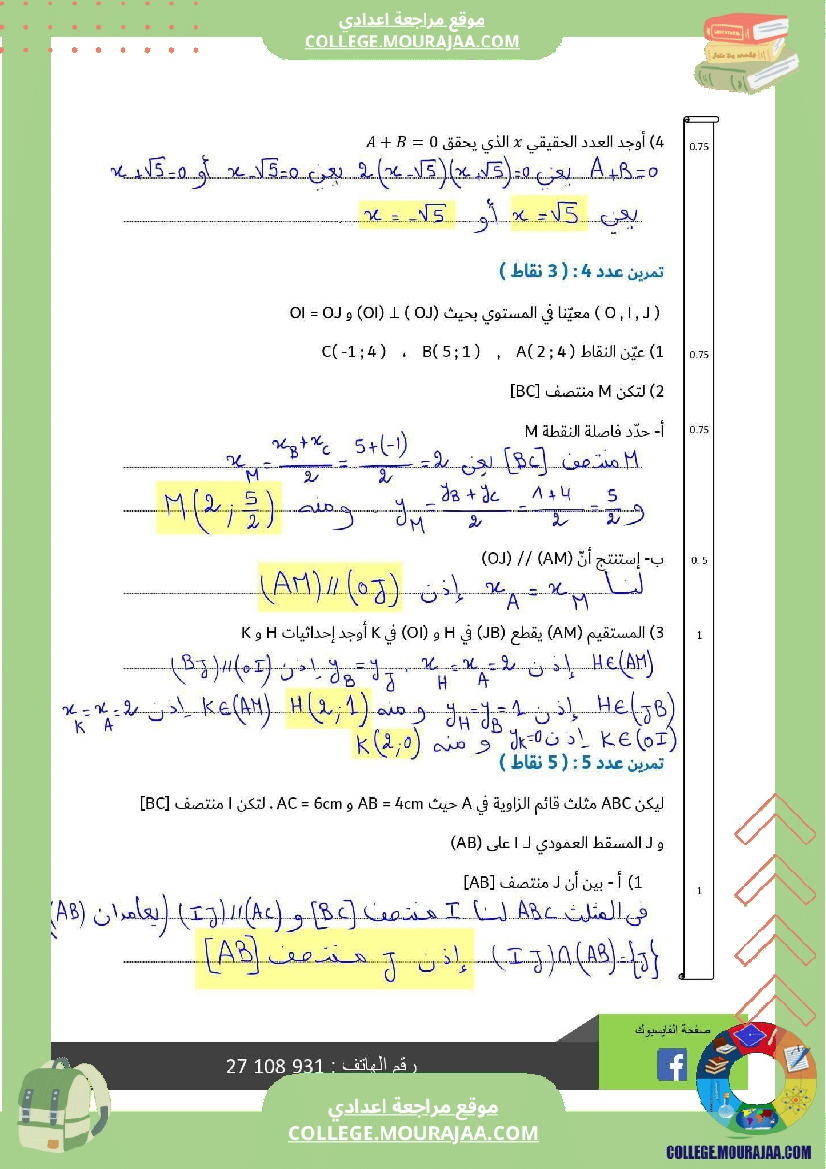 موقع مراجعة اعدادي
COLLEGE.MOURAJAA.COM
4) أوجد العدد الحقيقي x الذي يحقق A + B = 0
0.75
A+B=0 يعني 2(x-√5)(x+√5)=0 يعني x-√5=0 أو x+√5=0
يعني x=√5 أو x=-√5
تمرين عدد 4 : ( 3 نقاط )
( O , I , J ) معيّنا في المستوي بحيث (OI) ⊥ ( OJ) و OI = OJ
1) عيّن النقاط A( 2 ; 4 ) , B( 5 ; 1 ) ، C( -1 ; 4 )
0.75
2) لتكن M منتصف [BC]
أ- حدّد فاصلة النقطة M
0.75
M منتصف [BC] يعني x_M = (x_B+x_C)/2 = (5+(-1))/2 = 2
و y_M = (y_B+y_C)/2 = (1+4)/2 = 5/2 ومنه M(2 ; 5/2)
ب- إستنتج أنّ (AM) // (OJ)
0. 5
لنا x_A = x_M إذن (AM)//(OJ)
3) المستقيم (AM) يقطع (JB) في H و (OI) في K أوجد إحداثيات H و K
1
H∈(AM) إذن x_H=x_A=2 . y_B=y_J إذن (BJ)//(OI)
H∈(JB) إذن y_H=y_B=1 ومنه H(2;1) K∈(AM) إذن x_K=x_A=2
K∈(OI) إذن y_K=0 ومنه K(2;0)
تمرين عدد 5 : ( 5 نقاط )
ليكن ABC مثلث قائم الزاوية في A حيث AB = 4cm و AC = 6cm . لتكن I منتصف [BC]
و J المسقط العمودي لـ I على (AB)
1) أ - بين أن J منتصف [AB]
1
في المثلث ABC لنا I منتصف [BC] و (IJ)//(AC) (يعامدان (AB)
(IJ)∩(AB)={J} إذن J منتصف [AB]
صفحة الفايسبوك
رقم الهاتف : 27 108 931
موقع مراجعة اعدادي
COLLEGE.MOURAJAA.COM
COLLEGE.MOURAJAA.COM